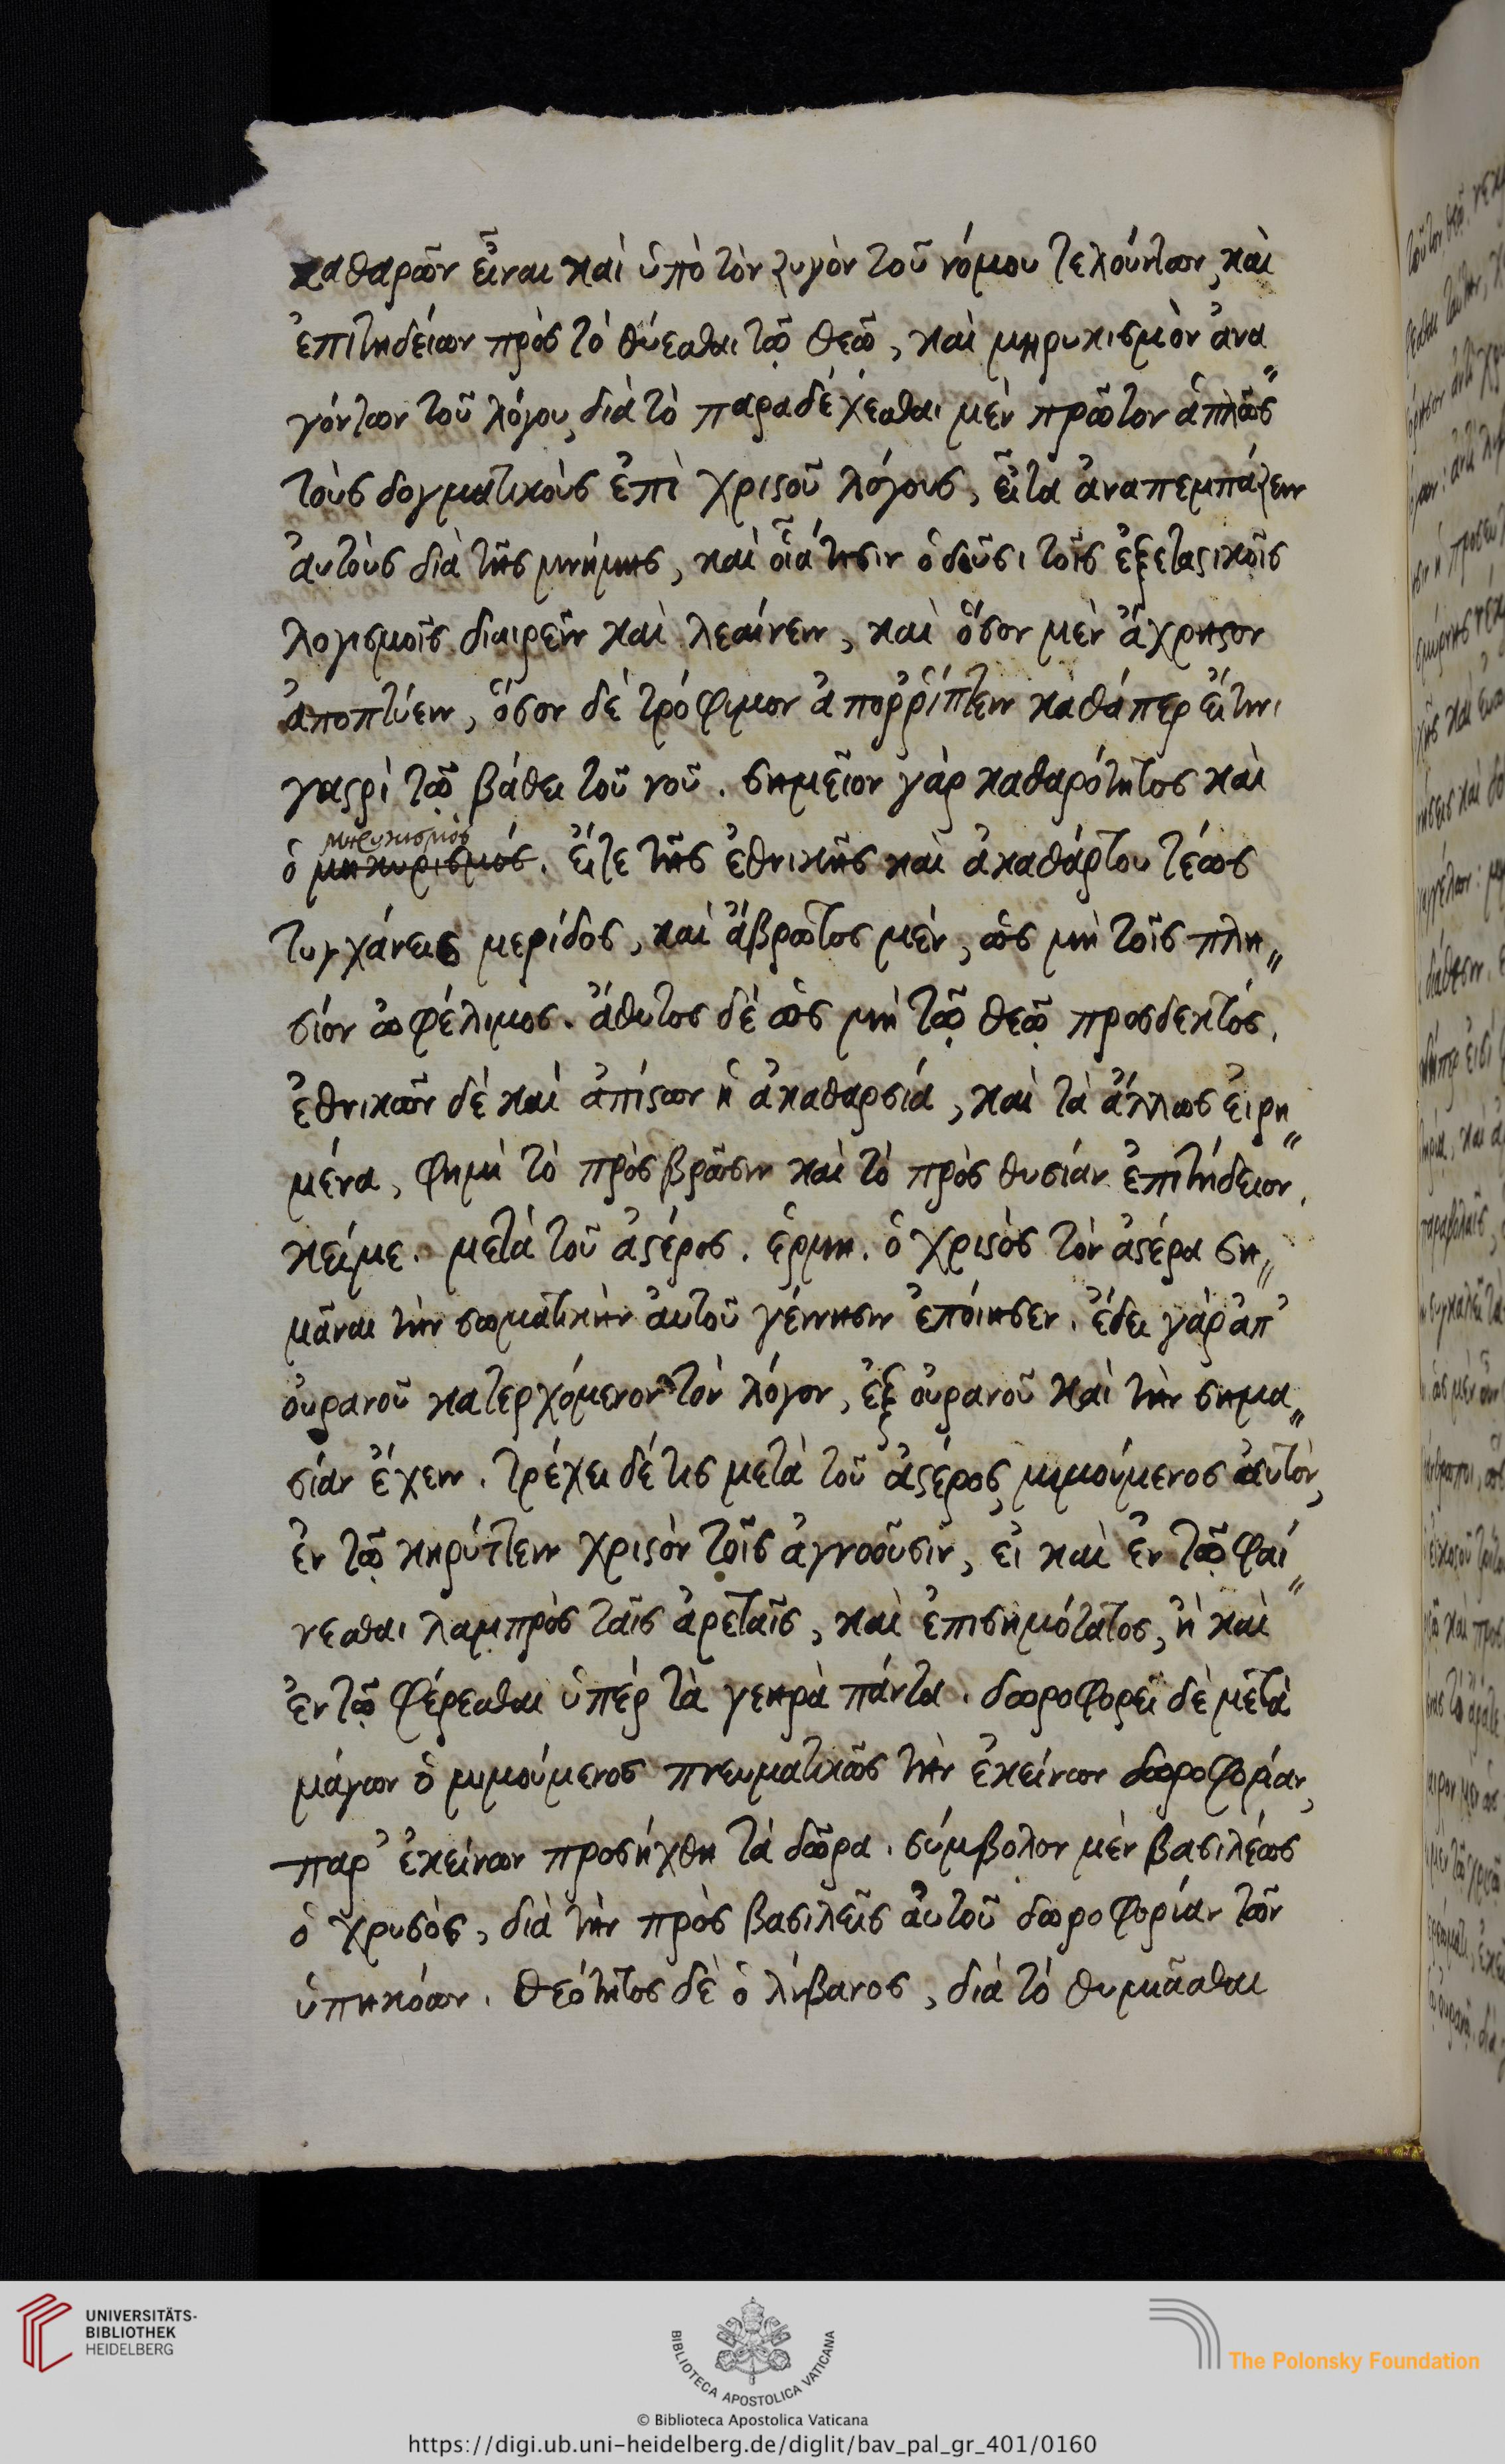 καθαρῶν εἶναι καὶ ὑπὸ τὸν ζυγὸν τοῦ νόμου τελούντων, καὶ
ἐπιτηδείων πρὸς τὸ θύεσθαι τῷ θεῷ, καὶ μηρυκισμὸν ἀνα〃
γόντων τοῦ λόγου, διὰ τὸ παραδέχεσθαι μὲν πρῶτον ἁπλῶς
τοὺς δογματικοὺς ἐπὶ χριστοῦ λόγους, εἶτα ἀναπεμπάζειν
ἀυτοὺς διὰ τῆς μνήμης, καὶ οἷά τισιν ὀδοῦσι τοῖς ἐξεταστικοῖς
λογισμοῖς διαιρεῖν καὶ λεαίνειν, καὶ ὅσον μὲν ἄχρηστον
ἀποπτύειν, ὅσον δὲ τρόφιμον ἀποῤῥίπτειν καθάπερ εἴ τινι
γαστρὶ τῷ βάθει τοῦ νοῦ. σημεῖον γὰρ καθαρότητος καὶ
μηρυκισμὸς
ὁ μηκυρισμός. εἴτε τῆς ἐθνικῆς καὶ ἀκαθάρτου τέως
τυγχάνεις μερίδος, καὶ ἄβρωτος μὲν, ὡς μὴ τοῖς πλη〃
σίον ὠφέλιμος. ἄθυτος δὲ ὡς μὴ τῷ θεῷ προσδεκτός.
ἐθνικῶν δὲ καὶ ἀπίστων ἡ ἀκαθαρσία, καὶ τὰ ἄλλως εἰρη〃
μένα, φημὶ τὸ πρὸς βρῶσιν καὶ τὸ πρὸς θυσίαν ἐπιτήδειον.
κείμε. μετὰ τοῦ ἀστέρος. ἑρμη. ὁ χριστὸς τὸν ἀστέρα ση〃
μᾶναι τὴν σωματικὴν ἀυτοῦ γέννησιν ἐποίησεν. ἔδει γὰρ ἀπ'
οὐρανοῦ κατερχόμενον τὸν λόγον, ἐξ οὐρανοῦ καὶ τὴν σημα〃
σίαν ἔχειν. τρέχει δέ τις μετὰ τοῦ ἀστέρος, μιμούμενος ἀυτὸν,
ἐν τῷ κηρύττειν χριστὸν τοῖς ἀγνοοῦσιν, εἰ καὶ ἐν τῷ φαί〃
νεσθαι λαμπρὸς ταῖς ἀρεταῖς, καὶ ἐπισημότατος, ἢ καὶ
ἐν τῷ φέρεσθαι ὑπὲρ τὰ γεηρὰ πάντα. δωροφορεῖ δὲ μετὰ
μάγων ὁ μιμούμενος πνευματικῶς τὴν ἐκείνων δωροφορίαν,
παρ' ἐκείνων προσήχθη τὰ δῶρα. σύμβολον μὲν βασιλέως
ὁ χρυσὸς, διὰ τὴν πρὸς βασιλεῖς ἀυτοῦ δωροφορίαν τῶν
ὑπηκόων. θεότητος δὲ ὁ λίβανος, διὰ τὸ θυμιᾶσθαι
UNIVERSITÄTS-
BIBLIOTHEK
HEIDELBERG
BIBLIOTECA APOSTOLICA VATICANA
The Polonsky Foundation
© Biblioteca Apostolica Vaticana
https://digi.ub.uni-heidelberg.de/diglit/bav_pal_gr_401/0160